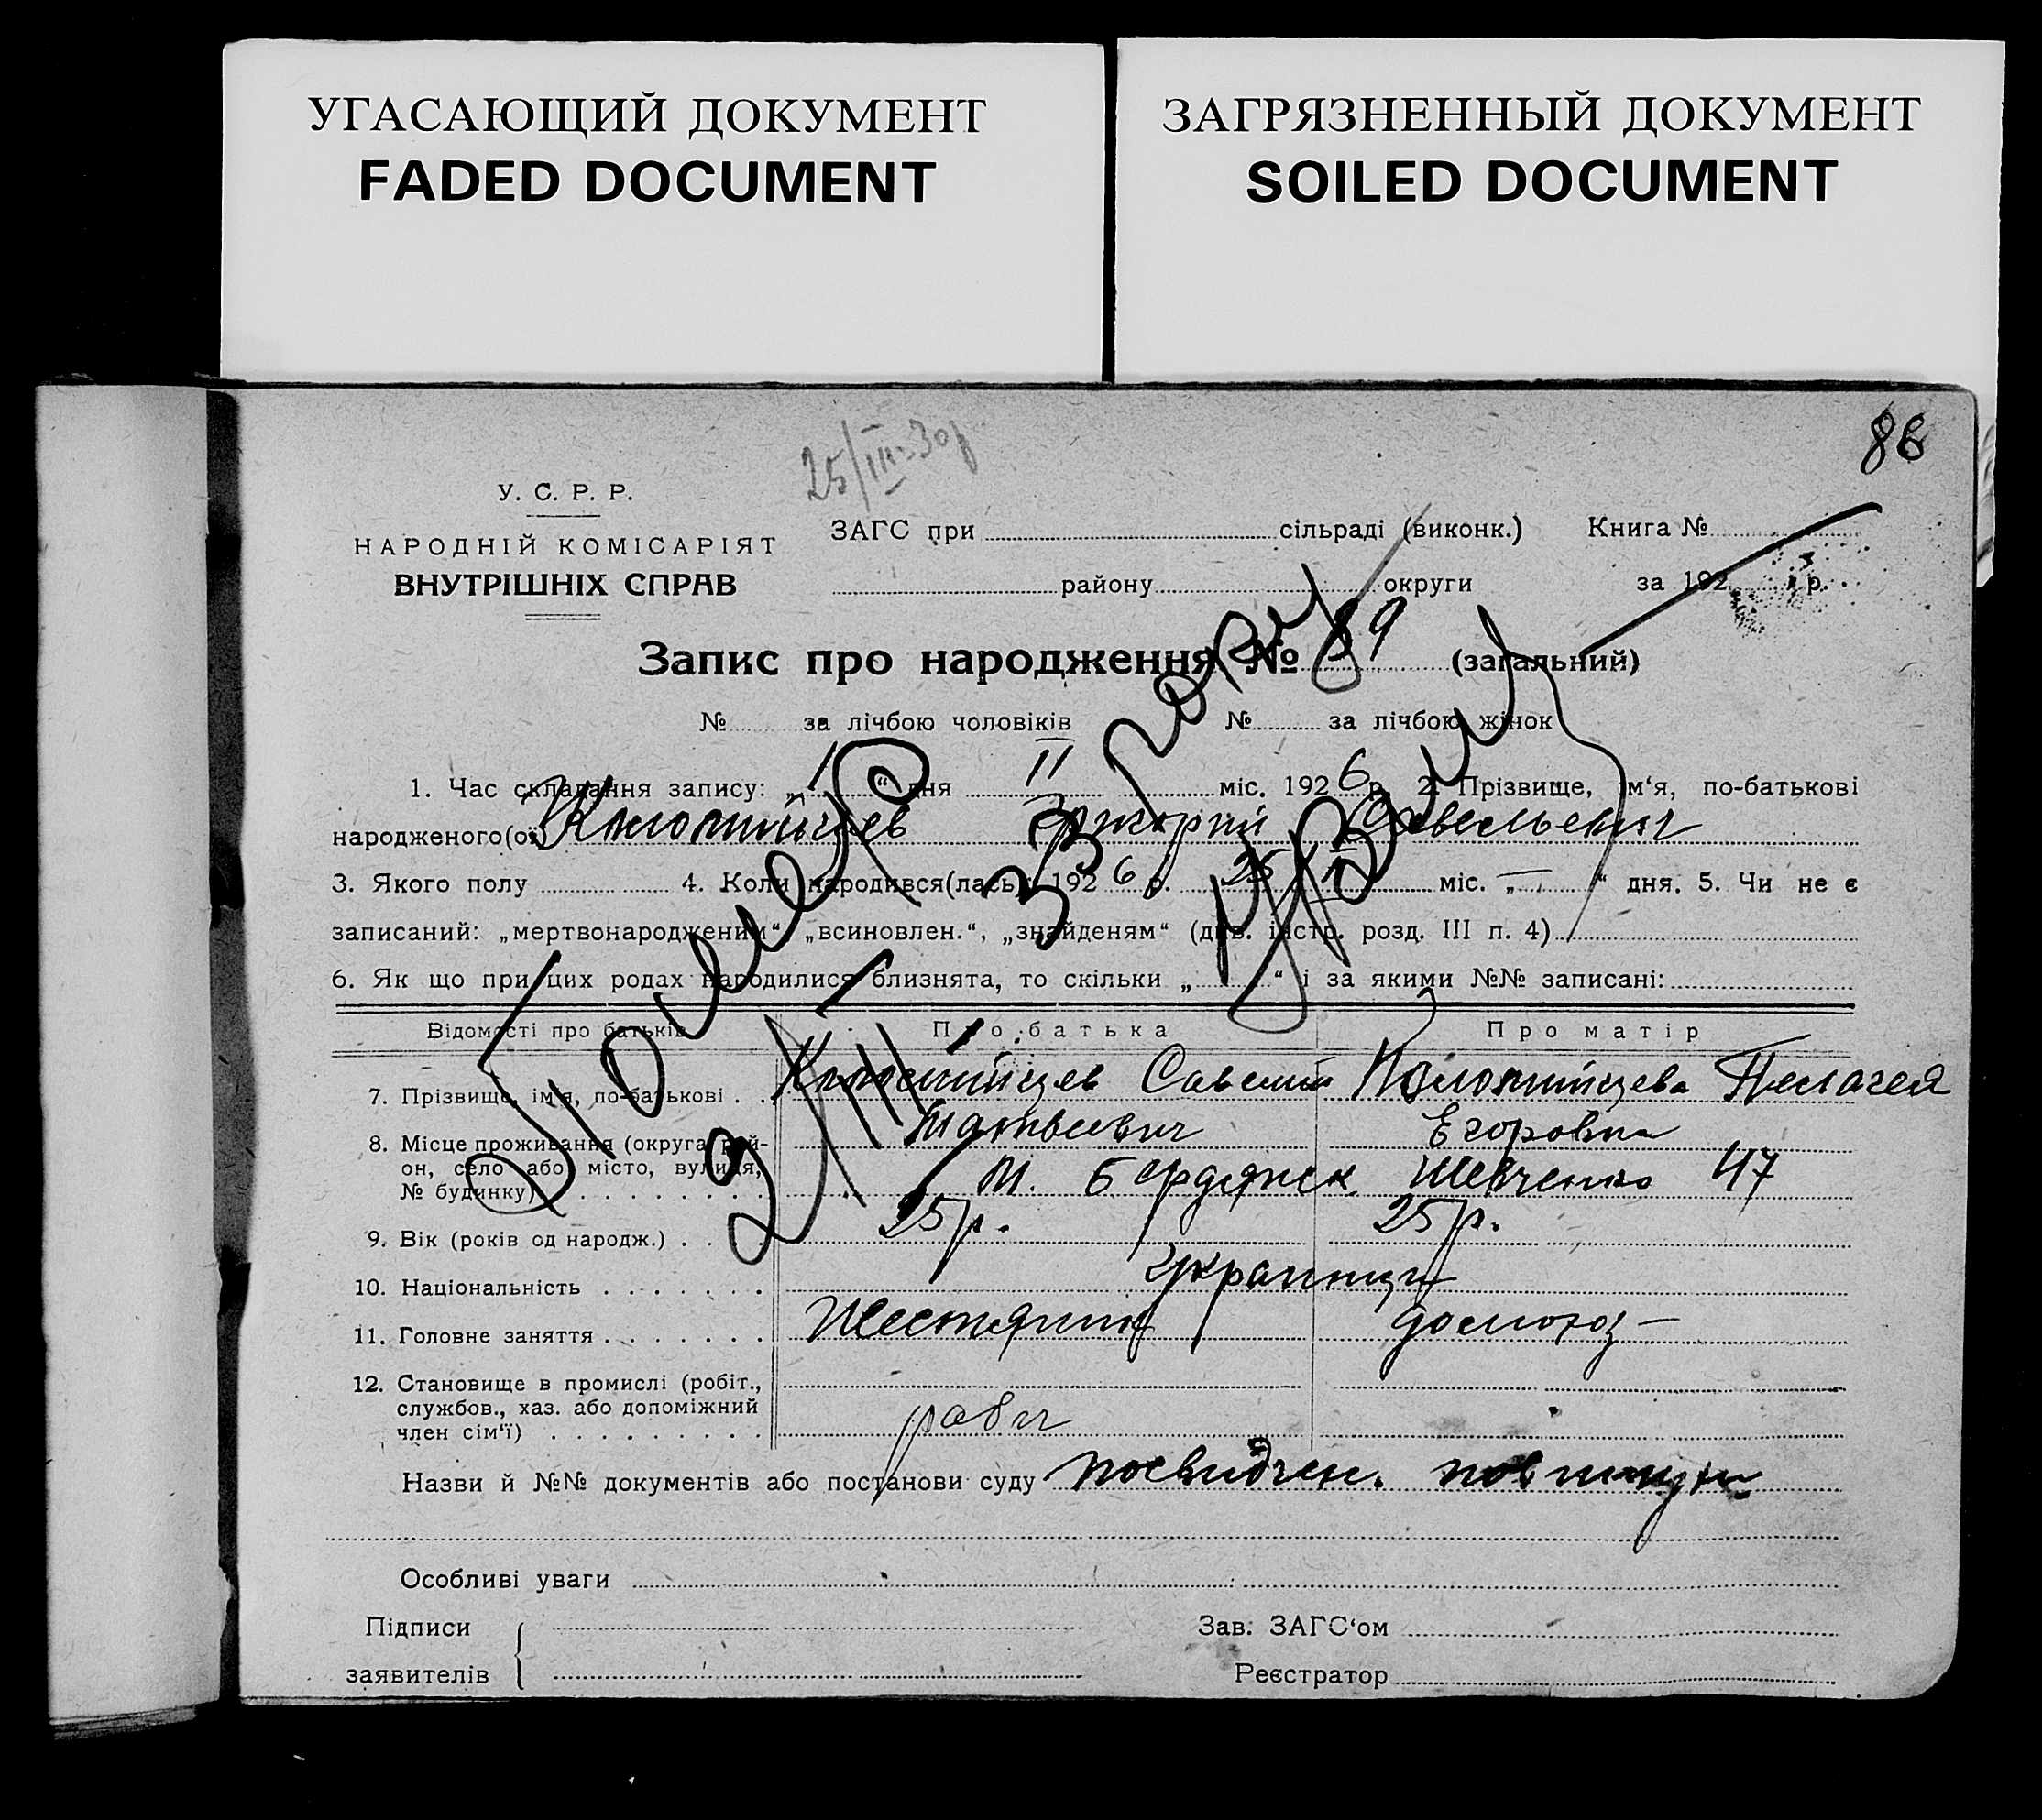 УГАСАЮЩИЙ ДОКУМЕНТ
FADED DOCUMENT
ЗАГРЯЗНЕННЫЙ ДОКУМЕНТ
SOILED DOCUMENT
86
25/III-30р
У. С. Р. Р.
НАРОДНІЙ КОМІСАРІЯТ
ВНУТРІШНІХ СПРАВ
ЗАГС при сільраді (виконк.) Книга №
району округи за 192 р.
Запис про народження № 89 (загальний)
№ за лічбою чоловіків № за лічбою жінок
1. Час складання запису: „1“ дня II міс. 1926 р. 2. Прізвище, ім‘я, по-батькові
народженого(ої) Коломийцев Григорий Савельевич
3. Якого полу 4. Коли народився(лась): 1926 р. 25 I міс. „—“ дня. 5. Чи не є
записаний: „мертвонародженим“, „всиновлен.“, „знайденям“ (див. інстр. розд. III п. 4)
6. Як що при цих родах народилися близнята, то скільки „ “ і за якими №№ записані:
Помер
2/III
З р
Відомості про батьків Про батька Про матір
7. Прізвище, ім‘я, по-батькові Коломийцев Савелий Коломийцева Пелагея
Матвеевич Егоровна
8. Місце проживання (округа, рай-
он, село або місто, вулиця,
№ будинку) М. Бердянск Шевченко 47
9. Вік (років од народж.) 25 р. 25 р.
10. Національність Украинци
11. Головне заняття Жестянщик домохоз —
12. Становище в промислі (робіт.,
службов., хаз. або допоміжний
член сім‘ї) рабоч
Назви й №№ документів або постанови суду посвидчен.
Особливі уваги
Підписи
заявителів
Зав. ЗАГС‘ом
Реєстратор